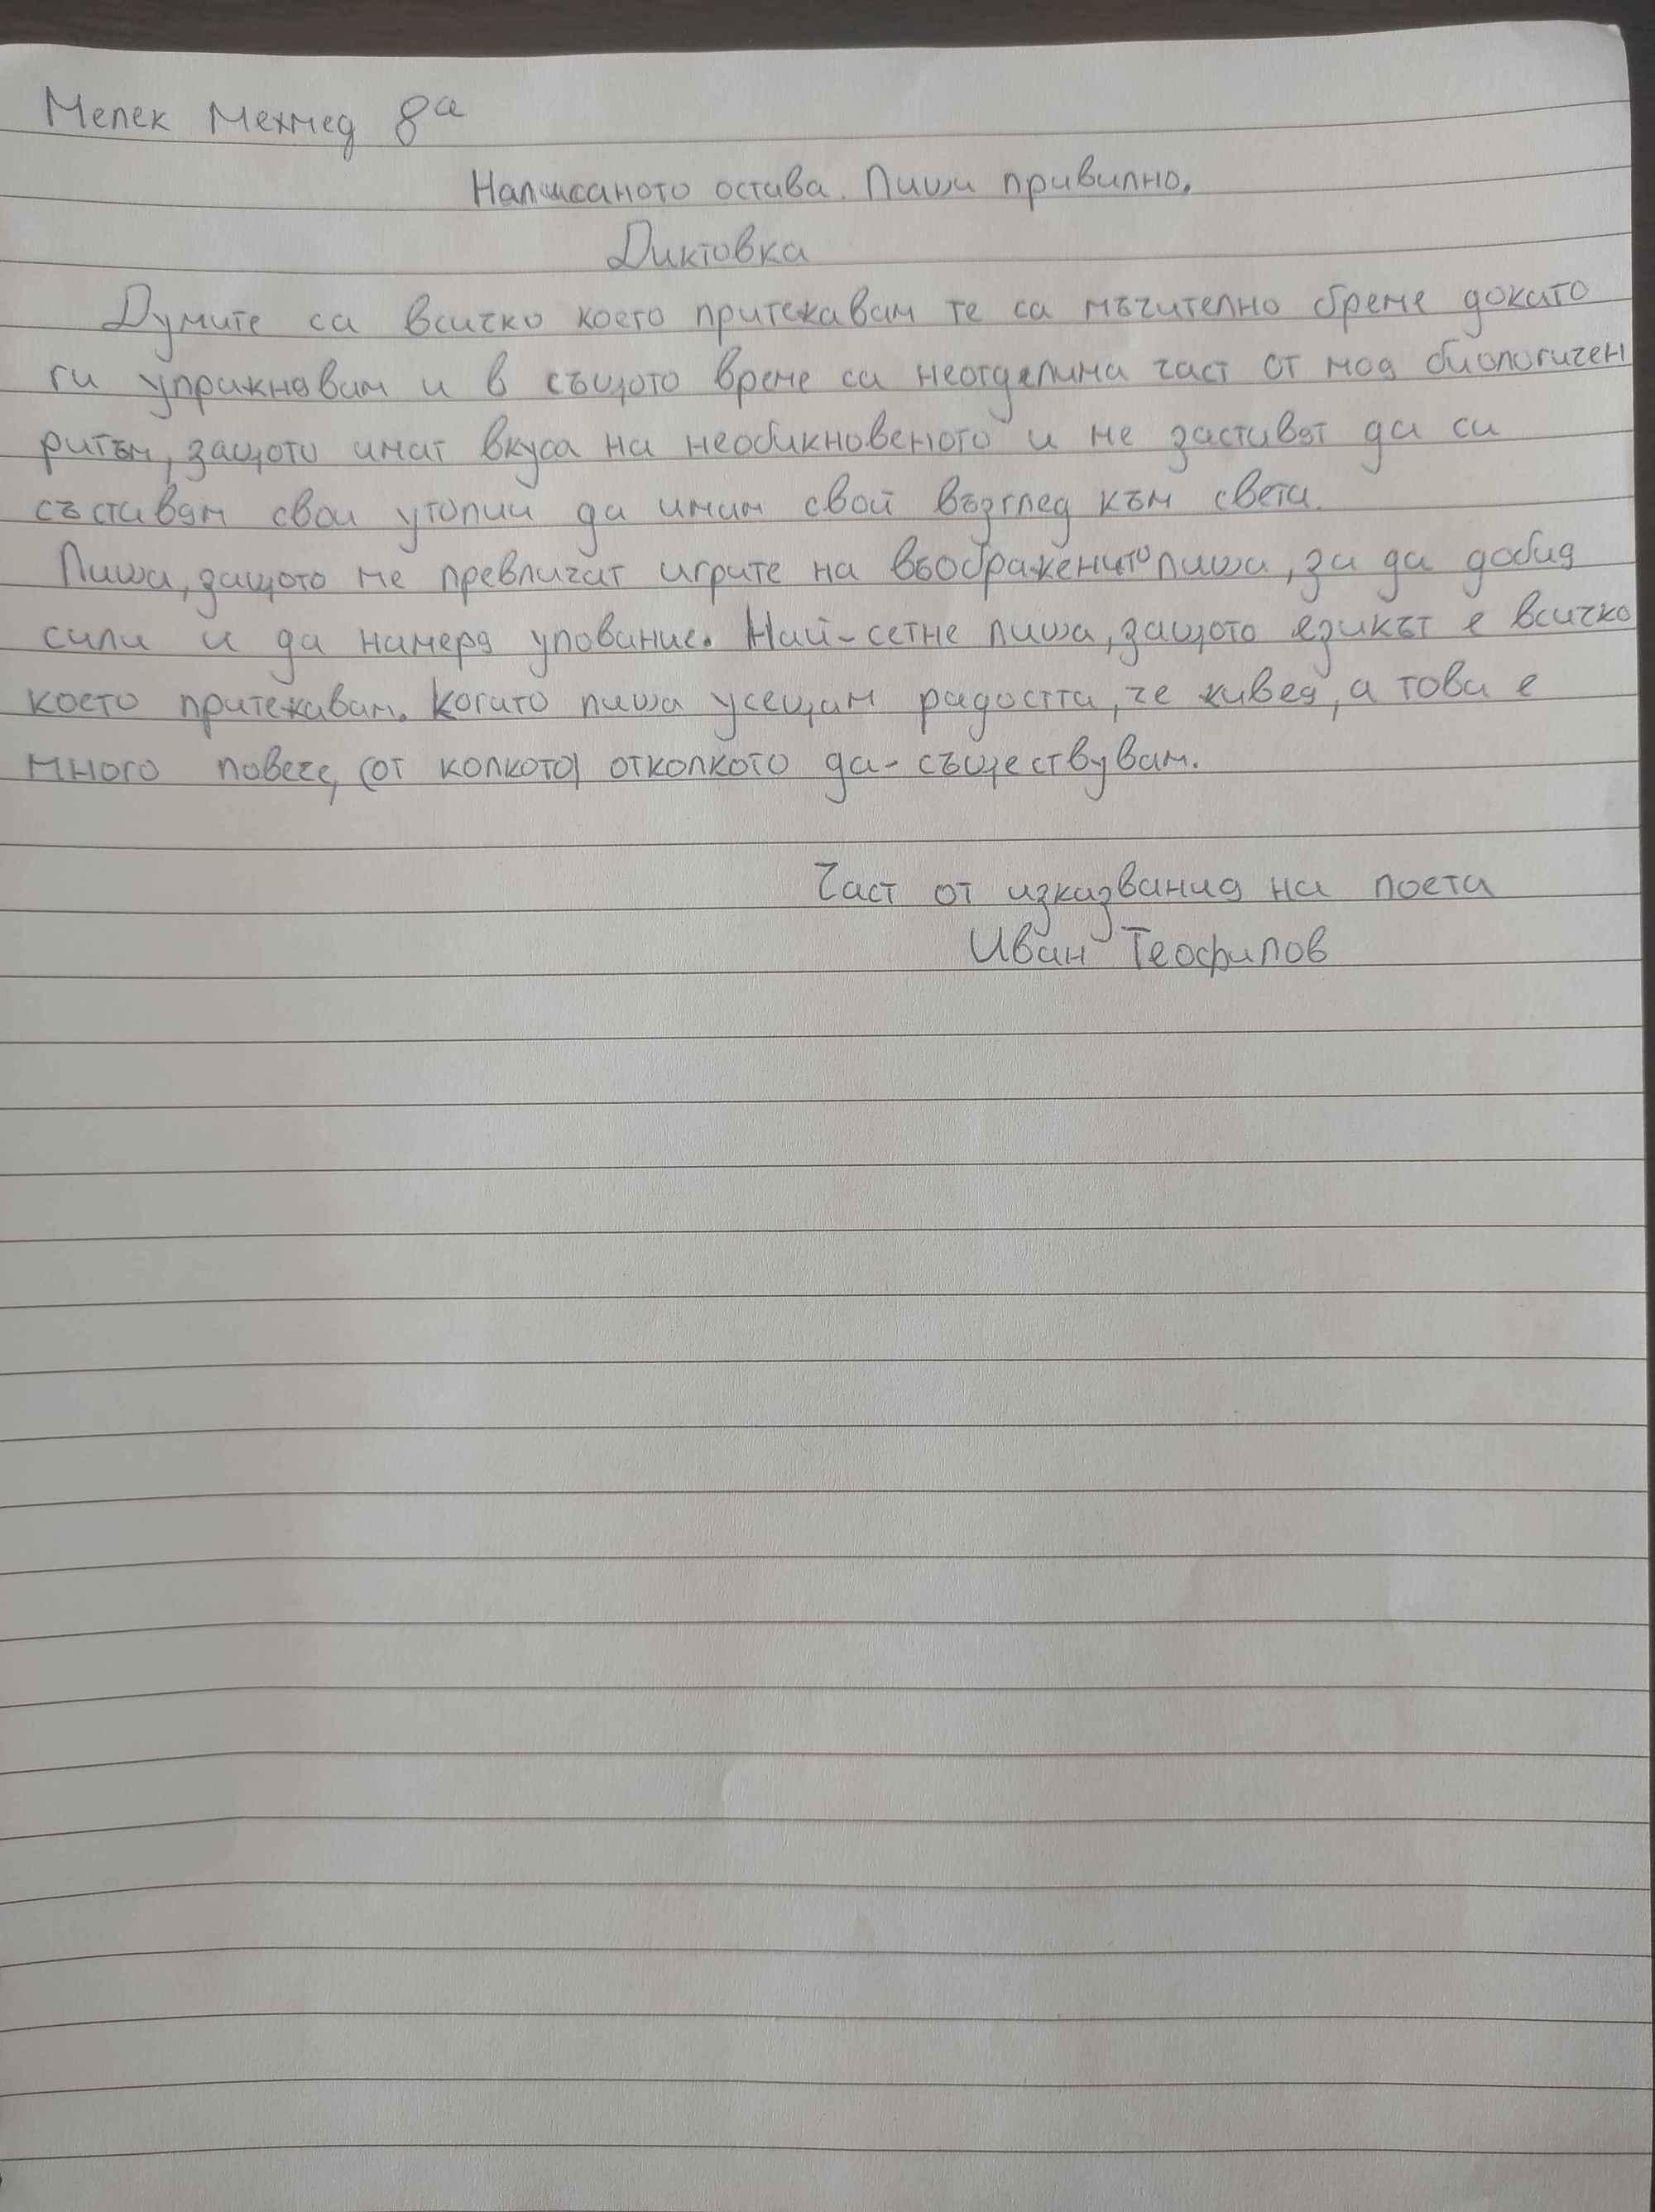 Мелек Мехмед 8а
Написаното остава. Пиши правилно.
Диктовка
Думите са всичко което притежавам те са мъчително бреме докато
ги упражнявам и в същото време са неотделима част от моя биологичен
ритъм, защото имат вкуса на необикновеното и ме заставят да си
съставям свои утопии да имам свой възглед към света.
Пиша, защото ме превличат игрите на въображението пиша, за да добия
сили и да намеря упование. Най-сетне пиша, защото езикът е всичко
което притежавам. Когато пиша усещам радостта, че живея, а това е
много повече, (от колкото) отколкото да- съществувам.
Част от изказвания на поета
Иван Теофилов